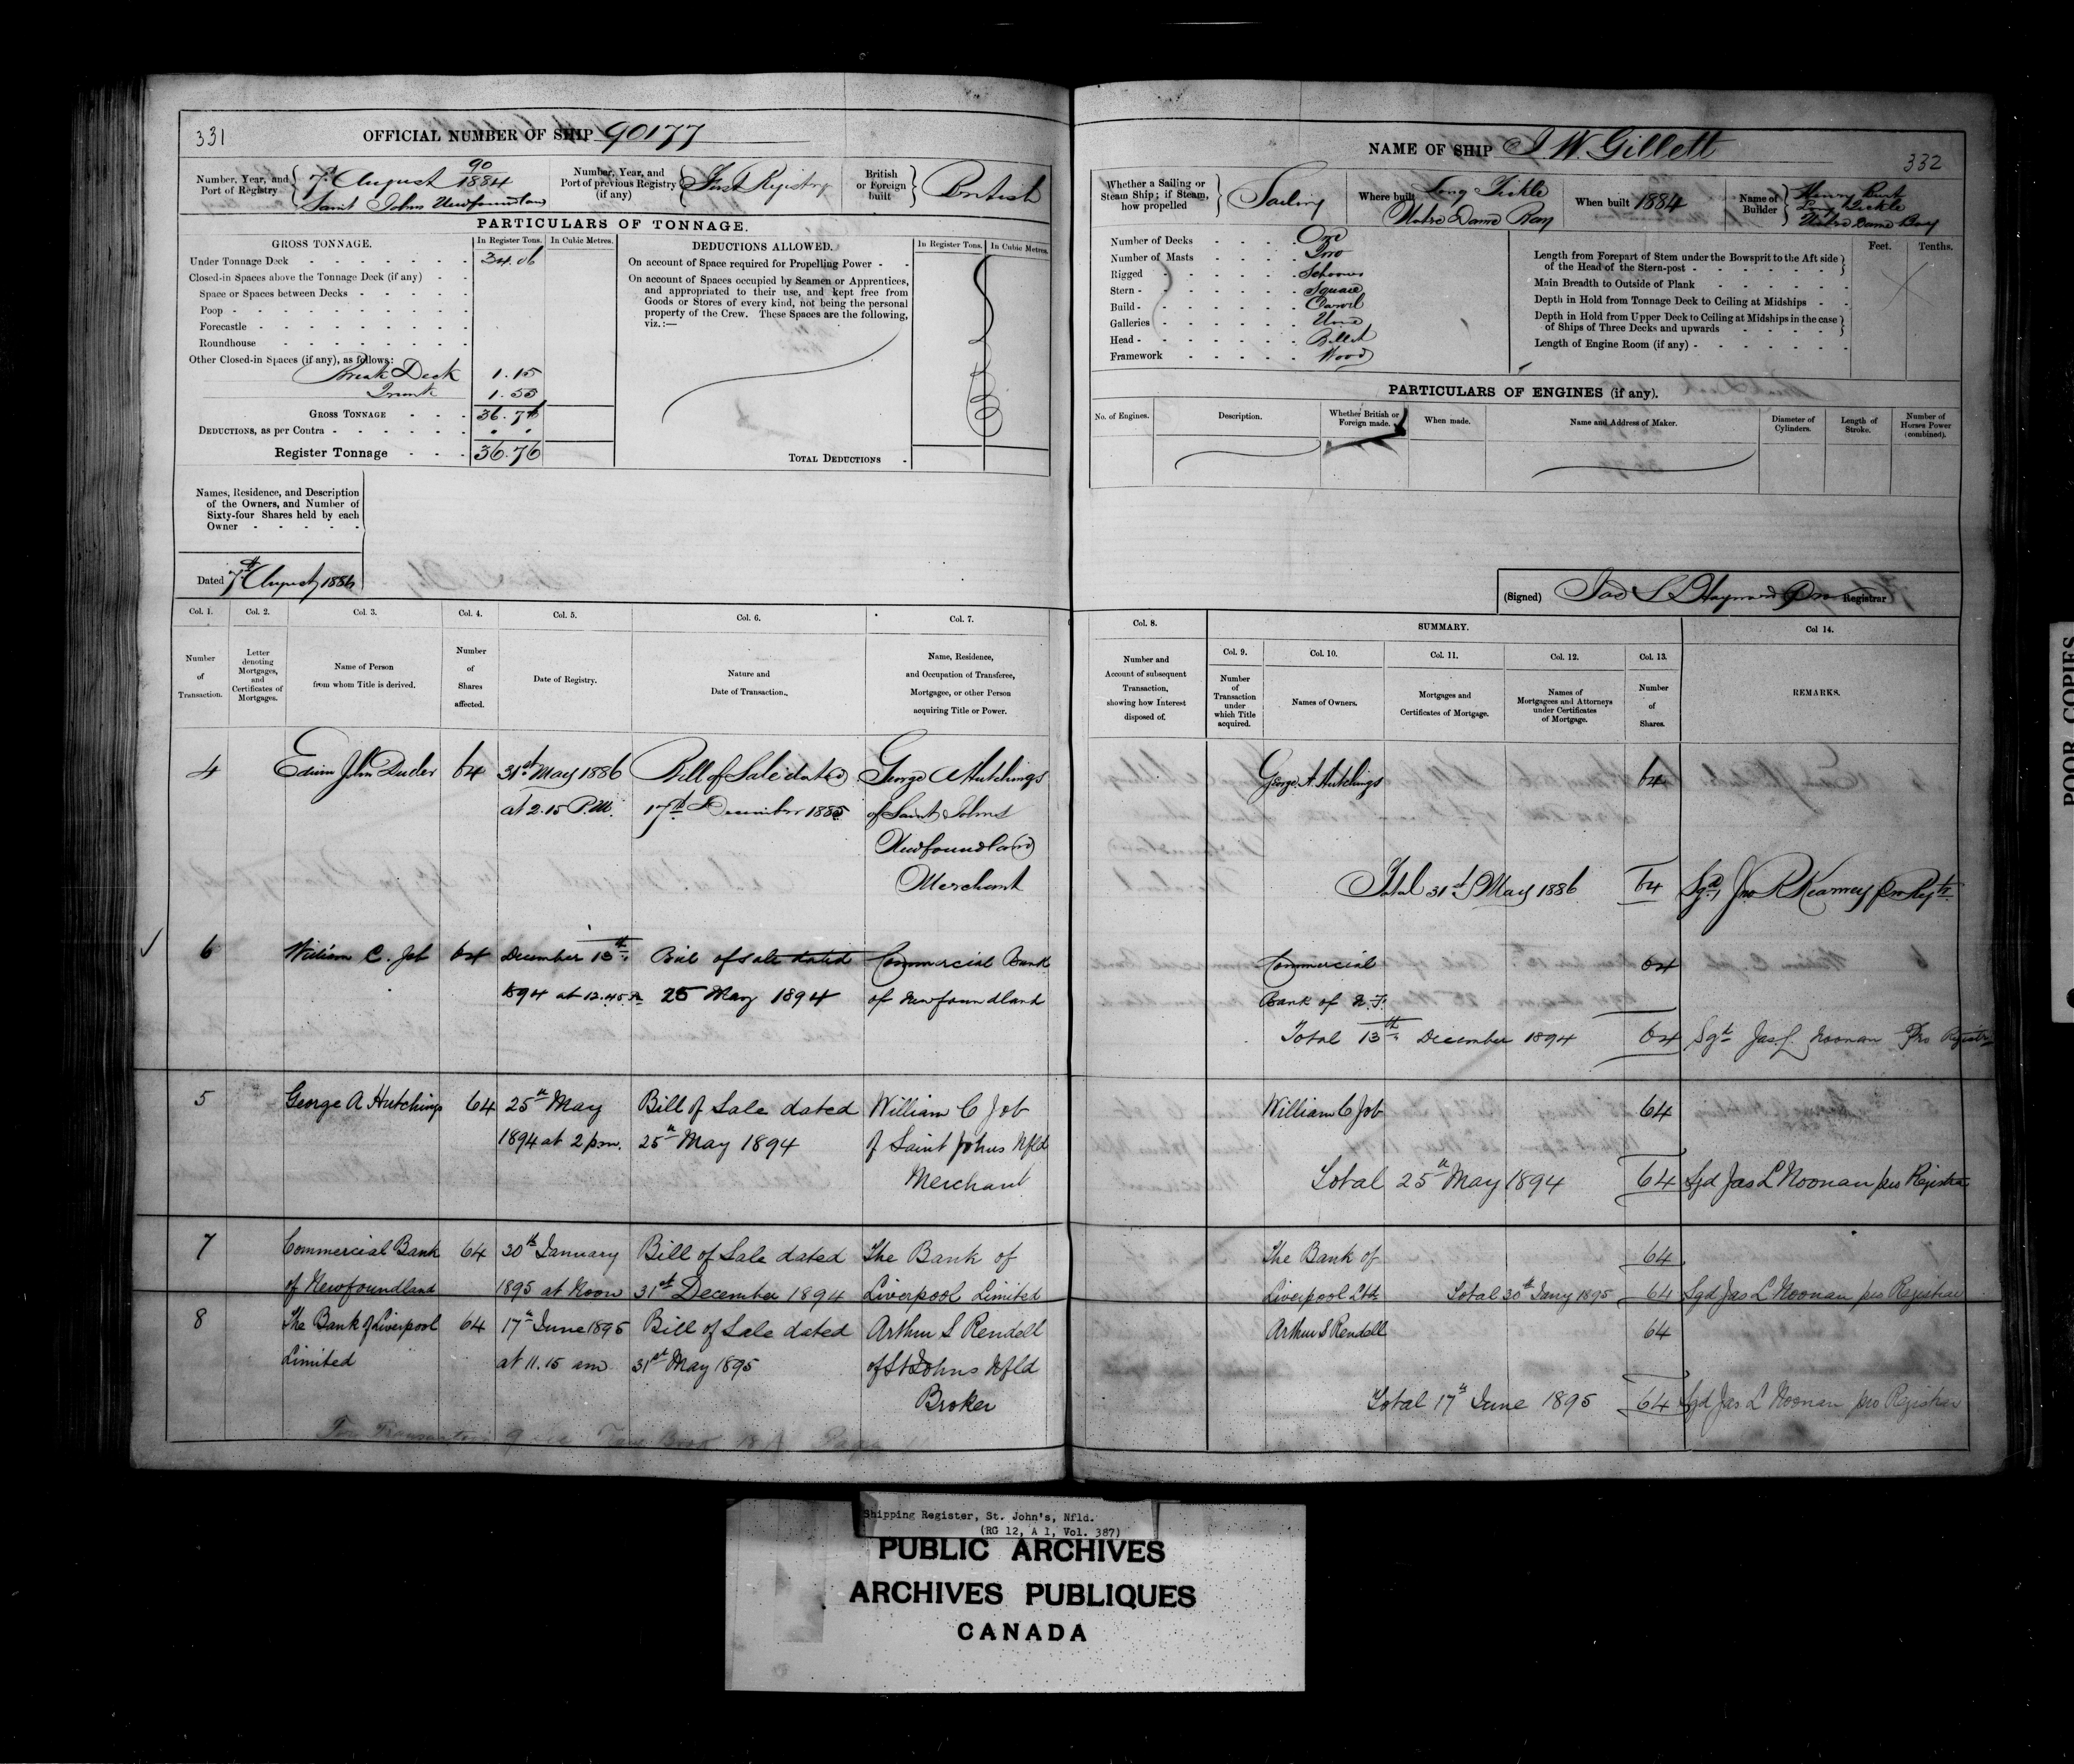 331
OFFICIAL NUMBER OF SHIP 90177
Number, Year, and Port of Registry
90
7th August 1884
Saint Johns Newfoundland
Number, Year, and Port of previous Registry (if any)
First Registry
British or Foreign built
British
PARTICULARS OF TONNAGE.
GROSS TONNAGE. In Register Tons. In Cubic Metres.
Under Tonnage Deck 34.06
Closed-in Spaces above the Tonnage Deck (if any)
Space or Spaces between Decks
Poop
Forecastle
Roundhouse
Other Closed-in Spaces (if any), as follows:
Break Deck 1.15
Trunk 1.55
GROSS TONNAGE 36.76
DEDUCTIONS, as per Contra
Register Tonnage 36.76
DEDUCTIONS ALLOWED. In Register Tons. In Cubic Metres.
On account of Space required for Propelling Power
On account of Spaces occupied by Seamen or Apprentices,
and appropriated to their use, and kept free from
Goods or Stores of every kind, not being the personal
property of the Crew. These Spaces are the following,
viz.:—
TOTAL DEDUCTIONS
Names, Residence, and Description
of the Owners, and Number of
Sixty-four Shares held by each
Owner
Dated 7th August 1886
Col. 1. Col. 2. Col. 3. Col. 4. Col. 5. Col. 6. Col. 7.
Number of Transaction.
Letter denoting Mortgages, and Certificates of Mortgages.
Name of Person from whom Title is derived.
Number of Shares affected.
Date of Registry.
Nature and Date of Transaction.
Name, Residence, and Occupation of Transferee, Mortgagee, or other Person acquiring Title or Power.
4 Edwin John Duder 64 31st May 1886 Bill of Sale dated George A Hutchings
at 2.15 P.M. 17th December 1885 of Saint Johns
Newfoundland
Merchant
6 William C. Job 64 December 13th Bill of sale dated Commercial Bank
1894 at 12.45 25 May 1894 of Newfoundland
5 George A Hutchings 64 25th May Bill of Sale dated William C Job
1894 at 2 pm. 25th May 1894 of Saint Johns Nfld
Merchant
7 Commercial Bank 64 30th January Bill of Sale dated The Bank of
of Newfoundland 1895 at Noon 31st December 1894 Liverpool Limited
8 The Bank of Liverpool 64 17th June 1895 Bill of Sale dated Arthur S Rendell
Limited at 11.15 am 31st May 1895 of St Johns Nfld
Broker
For Transaction 9 see Book Page
NAME OF SHIP J W. Gillett
332
Whether a Sailing or Steam Ship; if Steam, how propelled
Sailing
Where built
Long Tickle
Notre Dame Bay
When built 1884
Name of Builder
Henry Burt
Long Tickle
Notre Dame Bay
Number of Decks One
Number of Masts Two
Rigged Schooner
Stern Square
Build Carvel
Galleries None
Head Billet
Framework Wood
Feet. Tenths.
Length from Forepart of Stem under the Bowsprit to the Aft side
of the Head of the Stern-post
Main Breadth to Outside of Plank
Depth in Hold from Tonnage Deck to Ceiling at Midships
Depth in Hold from Upper Deck to Ceiling at Midships in the case
of Ships of Three Decks and upwards
Length of Engine Room (if any)
PARTICULARS OF ENGINES (if any).
No. of Engines. Description. Whether British or Foreign made. When made. Name and Address of Maker. Diameter of Cylinders. Length of Stroke. Number of Horses Power (combined).
(Signed) Jas S Hayward Pro Registrar
Col. 8. SUMMARY. Col 14.
Col. 9. Col. 10. Col. 11. Col. 12. Col. 13.
Number and Account of subsequent Transaction, showing how Interest disposed of.
Number of Transaction under which Title acquired.
Names of Owners.
Mortgages and Certificates of Mortgage.
Names of Mortgagees and Attorneys under Certificates of Mortgage.
Number of Shares.
REMARKS.
George A. Hutchings 64
Total 31st May 1886 64 Sgd Jno R Kearney Pro Regtr
Commercial 64
Bank of N.F.
Total 13th December 1894 64 Sgd Jas L Noonan Pro Registrar
William C Job 64
Total 25th May 1894 64 Sgd Jas L Noonan pro Registrar
The Bank of 64
Liverpool Ltd Total 30th Jany 1895 64 Sgd Jas L Noonan pro Registrar
Arthur S Rendell 64
Total 17th June 1895 64 Sgd Jas L Noonan pro Registrar
POOR COPIES
Shipping Register, St. John's, Nfld.
(RG 12, A 1, Vol. 387)
PUBLIC ARCHIVES
ARCHIVES PUBLIQUES
CANADA